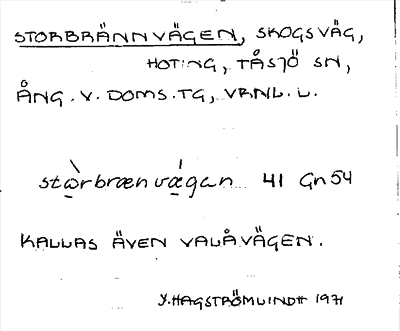 STORBRÄNNVÄGEN, SKOGSVÄG,
HOTING, TÅSJÖ SN,
ÅNG. V. DOMS. TG, VRNL. L.
stòrbrænvágan 41 Gn54
KALLAS ÄVEN VALÅVÄGEN.
Y. HAGSTRÖMLINDH 1971